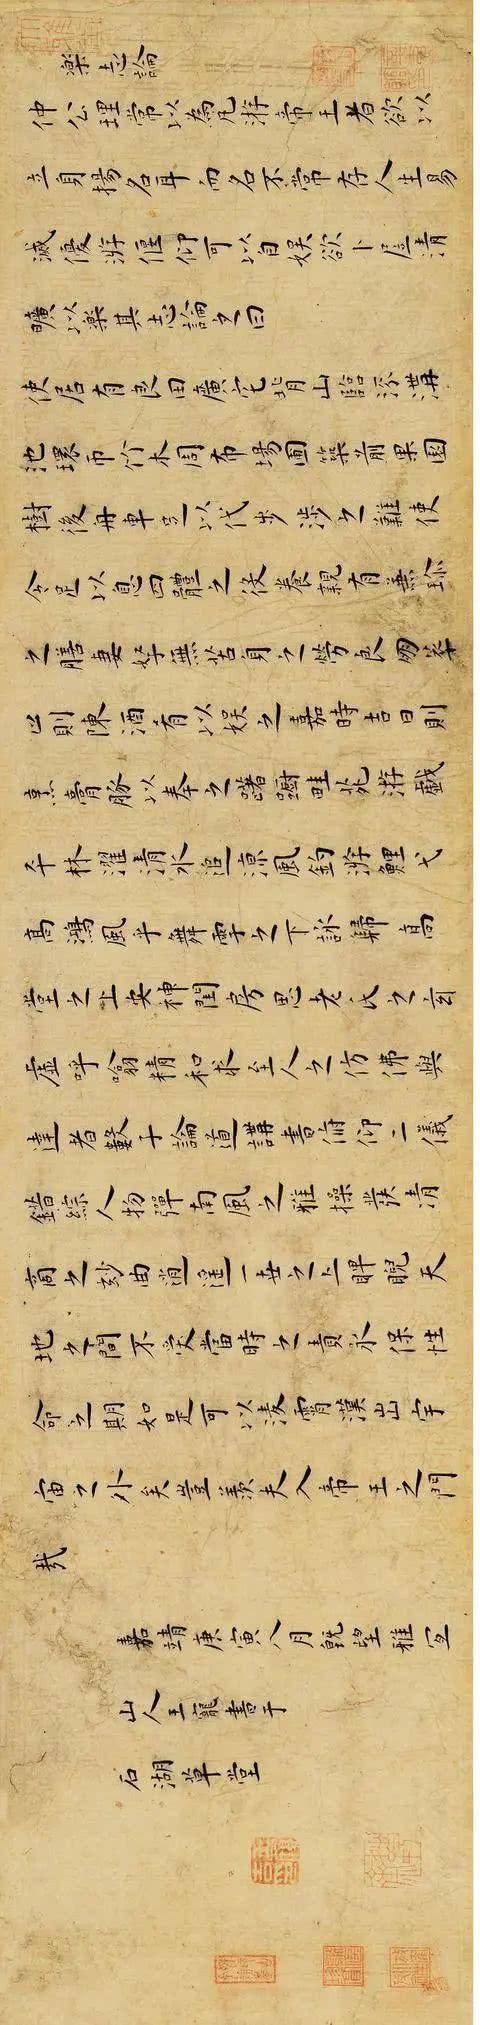 樂志論
仲公理常以為凡游帝王者欲以
立身揚名耳而名不常存人生易
滅優游偃仰可以自娛欲卜居清
曠以樂其志論之曰
使居有良田廣宅背山臨流溝
池環帀竹木周布場圃築前果園
樹後舟車足以代步涉之難使
令足以息四體之役養親有兼珍
之膳妻孥無苦身之勞良朋萃
止則陳酒肴以娛之嘉時吉日則
烹膏豚以奉之躊躕畦苑游戲
平林濯清水追涼風釣游鯉弋
高鴻風乎舞雩之下詠歸高
堂之上安神閨房思老氏之玄
虛呼噏精和求至人之仿佛與
達者數子論道講書俯仰二儀
錯綜人物彈南風之雅操發清
商之玅曲逍遙一世之上睥睨天
地之間不受當時之責永保性
命之期如是可以凌霄漢出宇
宙之外矣豈羨夫入帝王之門
哉
嘉靖庚寅八月既望雅宜
山人王寵書于
石湖草堂